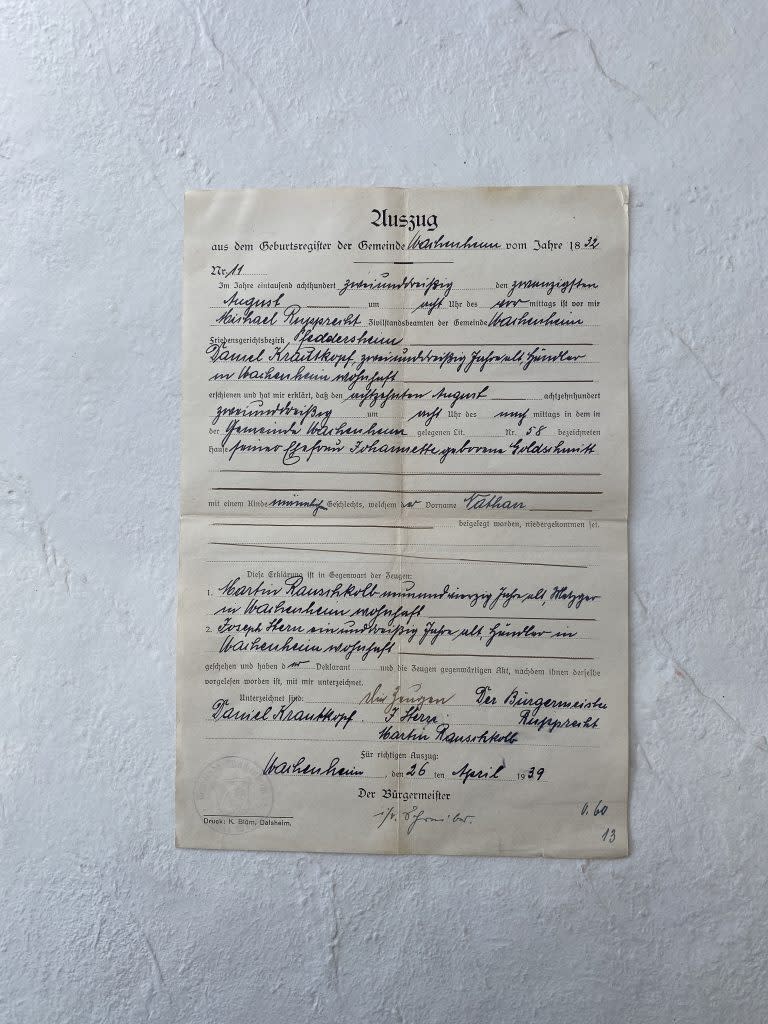 Auszug
aus dem Geburtsregister der Gemeinde Wachenheim vom Jahre 1832
Nr. 11
Im Jahre eintausend achthundert zweiunddreißig den zwanzigsten
August um acht Uhr des vor mittags ist vor mir
Michael Rupprecht Zivilstandsbeamten der Gemeinde Wachenheim
Friedensgerichtsbezirk Pfeddersheim
Daniel Krautkopf, zweiunddreißig Jahre alt, Händler
in Wachenheim wohnhaft
erschienen und hat mir erklärt, daß den achtzehnten August achtzehnhundert
zweiunddreißig um acht Uhr des nach mittags in dem in
der Gemeinde Wachenheim gelegenen Lit. Nr. 58 bezeichneten
Hause seiner Ehefrau Johannette geborene Goldschmitt
mit einem Kinde männlich Geschlechts, welchem der Vorname Nathan
beigelegt worden, niedergekommen sei.
Diese Erklärung ist in Gegenwart der Zeugen:
1. Martin Rauschkolb neunundvierzig Jahre alt, Metzger
in Wachenheim wohnhaft
2. Joseph Stern einunddreißig Jahre alt Händler in
Wachenheim wohnhaft
geschehen und haben der Deklarant und die Zeugen gegenwärtigen Akt, nachdem ihnen derselbe
vorgelesen worden ist, mit mir unterzeichnet.
Unterzeichnet sind: Die Zeugen Der Bürgermeister
Daniel Krautkopf. J Stern Rupprecht
Martin Rauschkolb
Für richtigen Auszug:
Wachenheim, den 26 ten April 1939
Der Bürgermeister
i/v. Schreiber.
Druck: K. Blüm, Dalsheim.
0.60
13